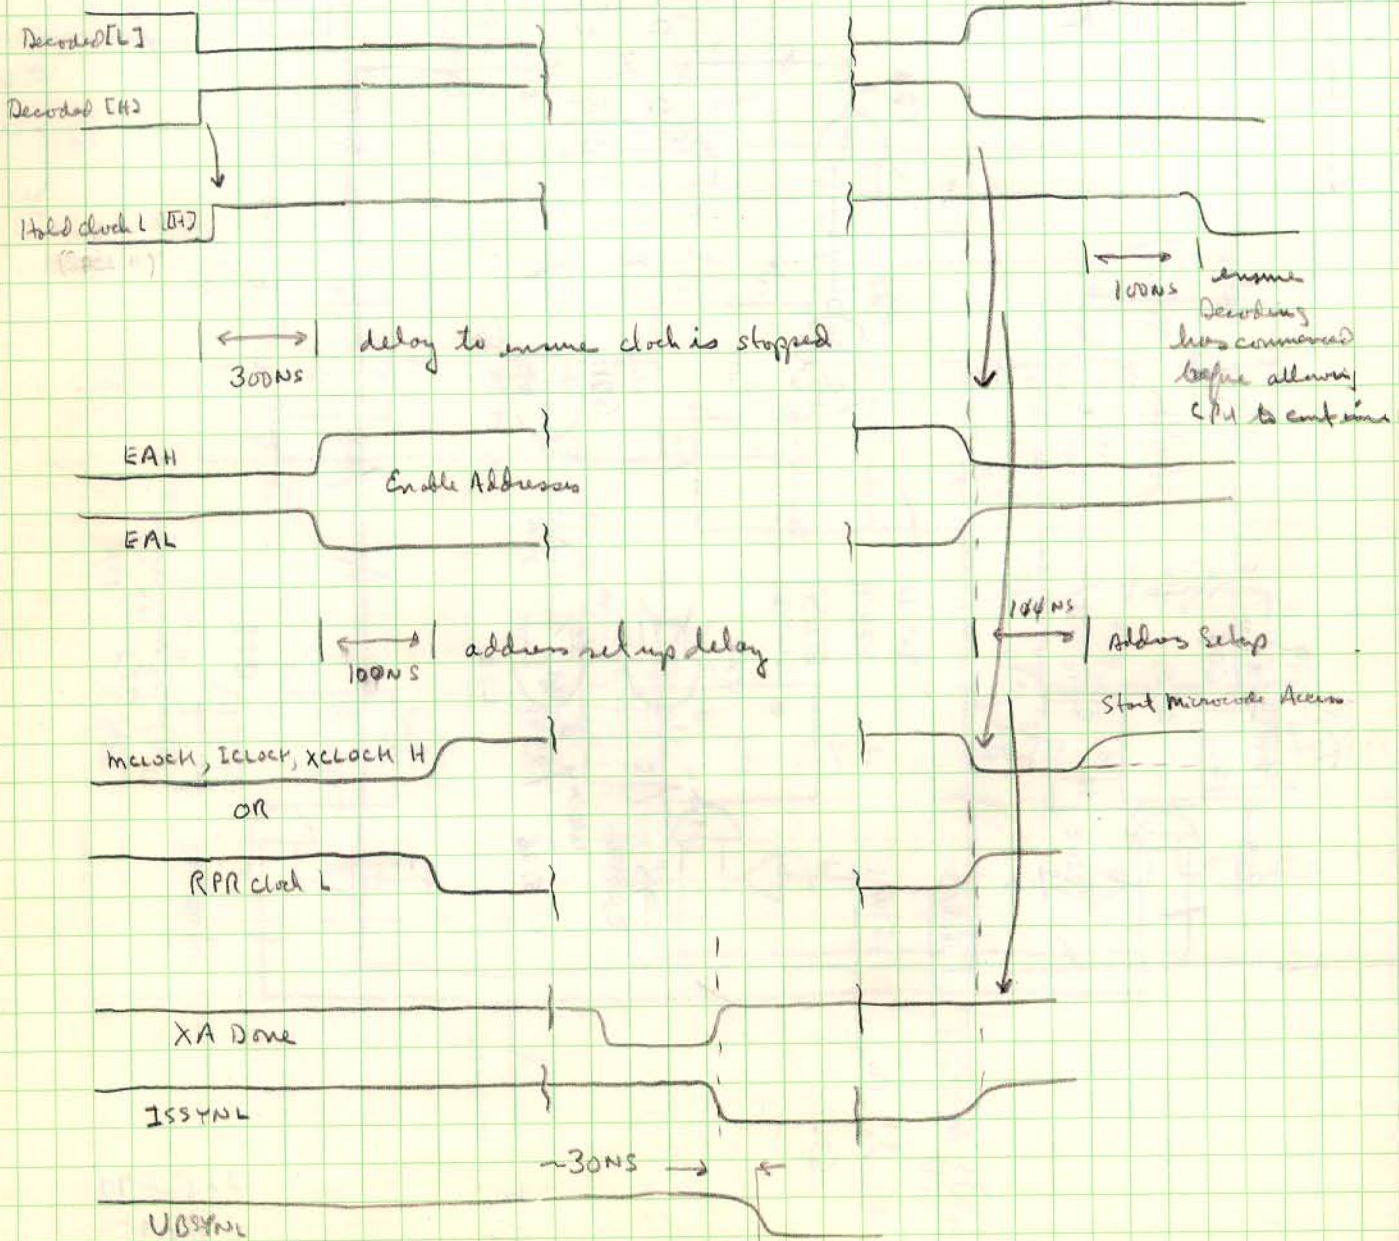 Decoded [L]
Decoded [H]
Hold clock L [H]
300NS
delay to ensure clock is stopped
100NS
ensure
Decoding
has commenced
before allowing
CPU to continue
EAH
Enable Addresses
EAL
100NS
address set up delay
100 NS
Address Setup
Start Microcode Access
MCLOCK, ICLOCK, XCLOCK H
OR
RPR Clock L
XA Done
ISSYNL
~30NS
UBSYNL